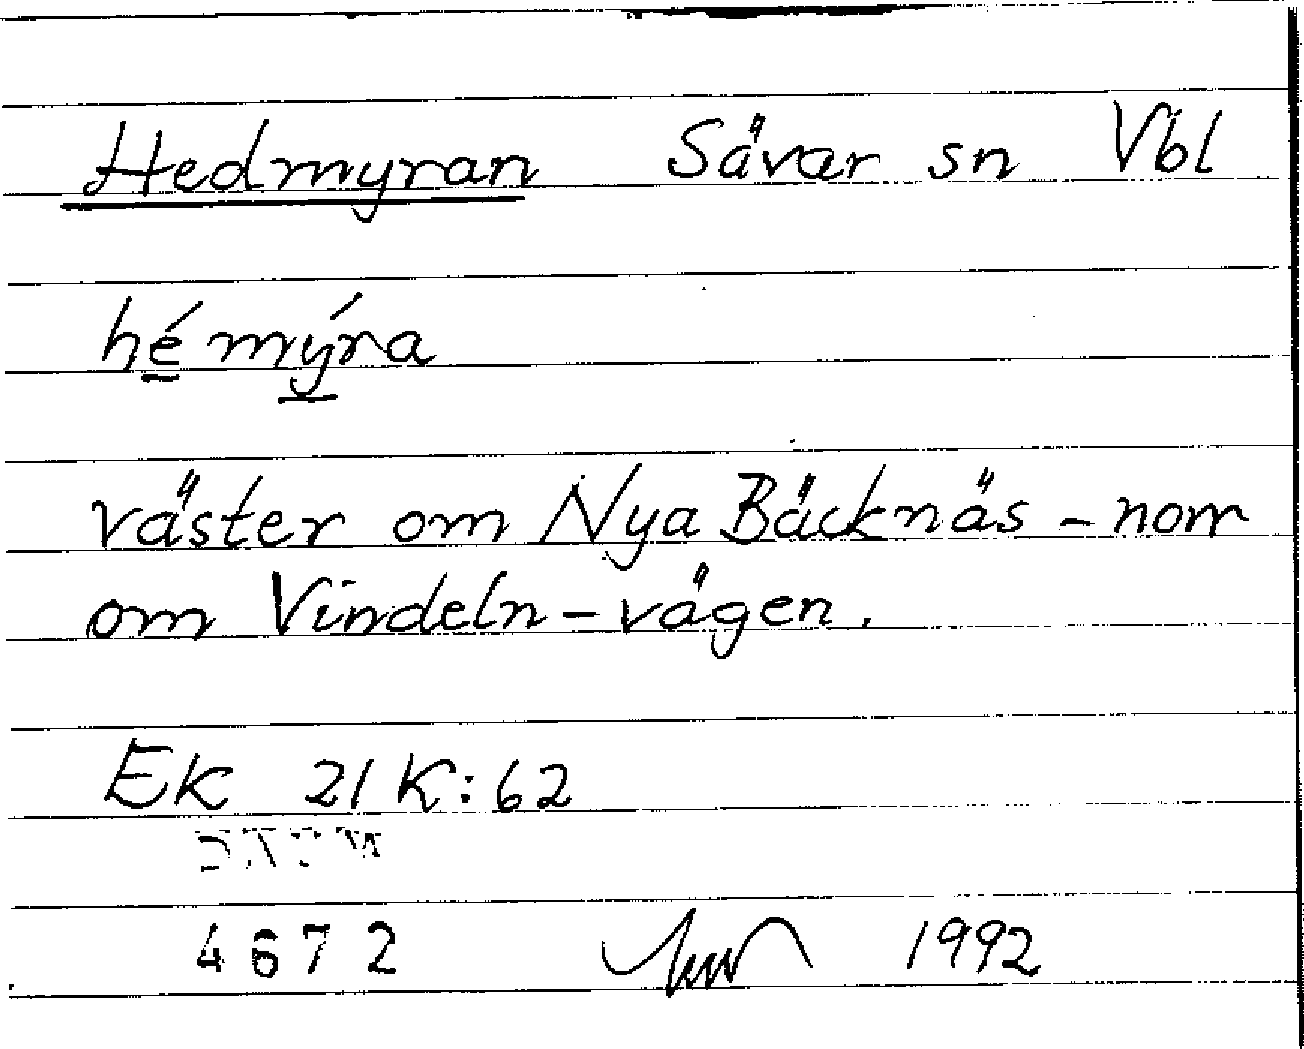 Hedmyran Sävar sn Vbl
hé mýra
väster om Nya Bäcknäs - norr
om Vindeln-vägen.
Ek 21 K:62
4672 1992